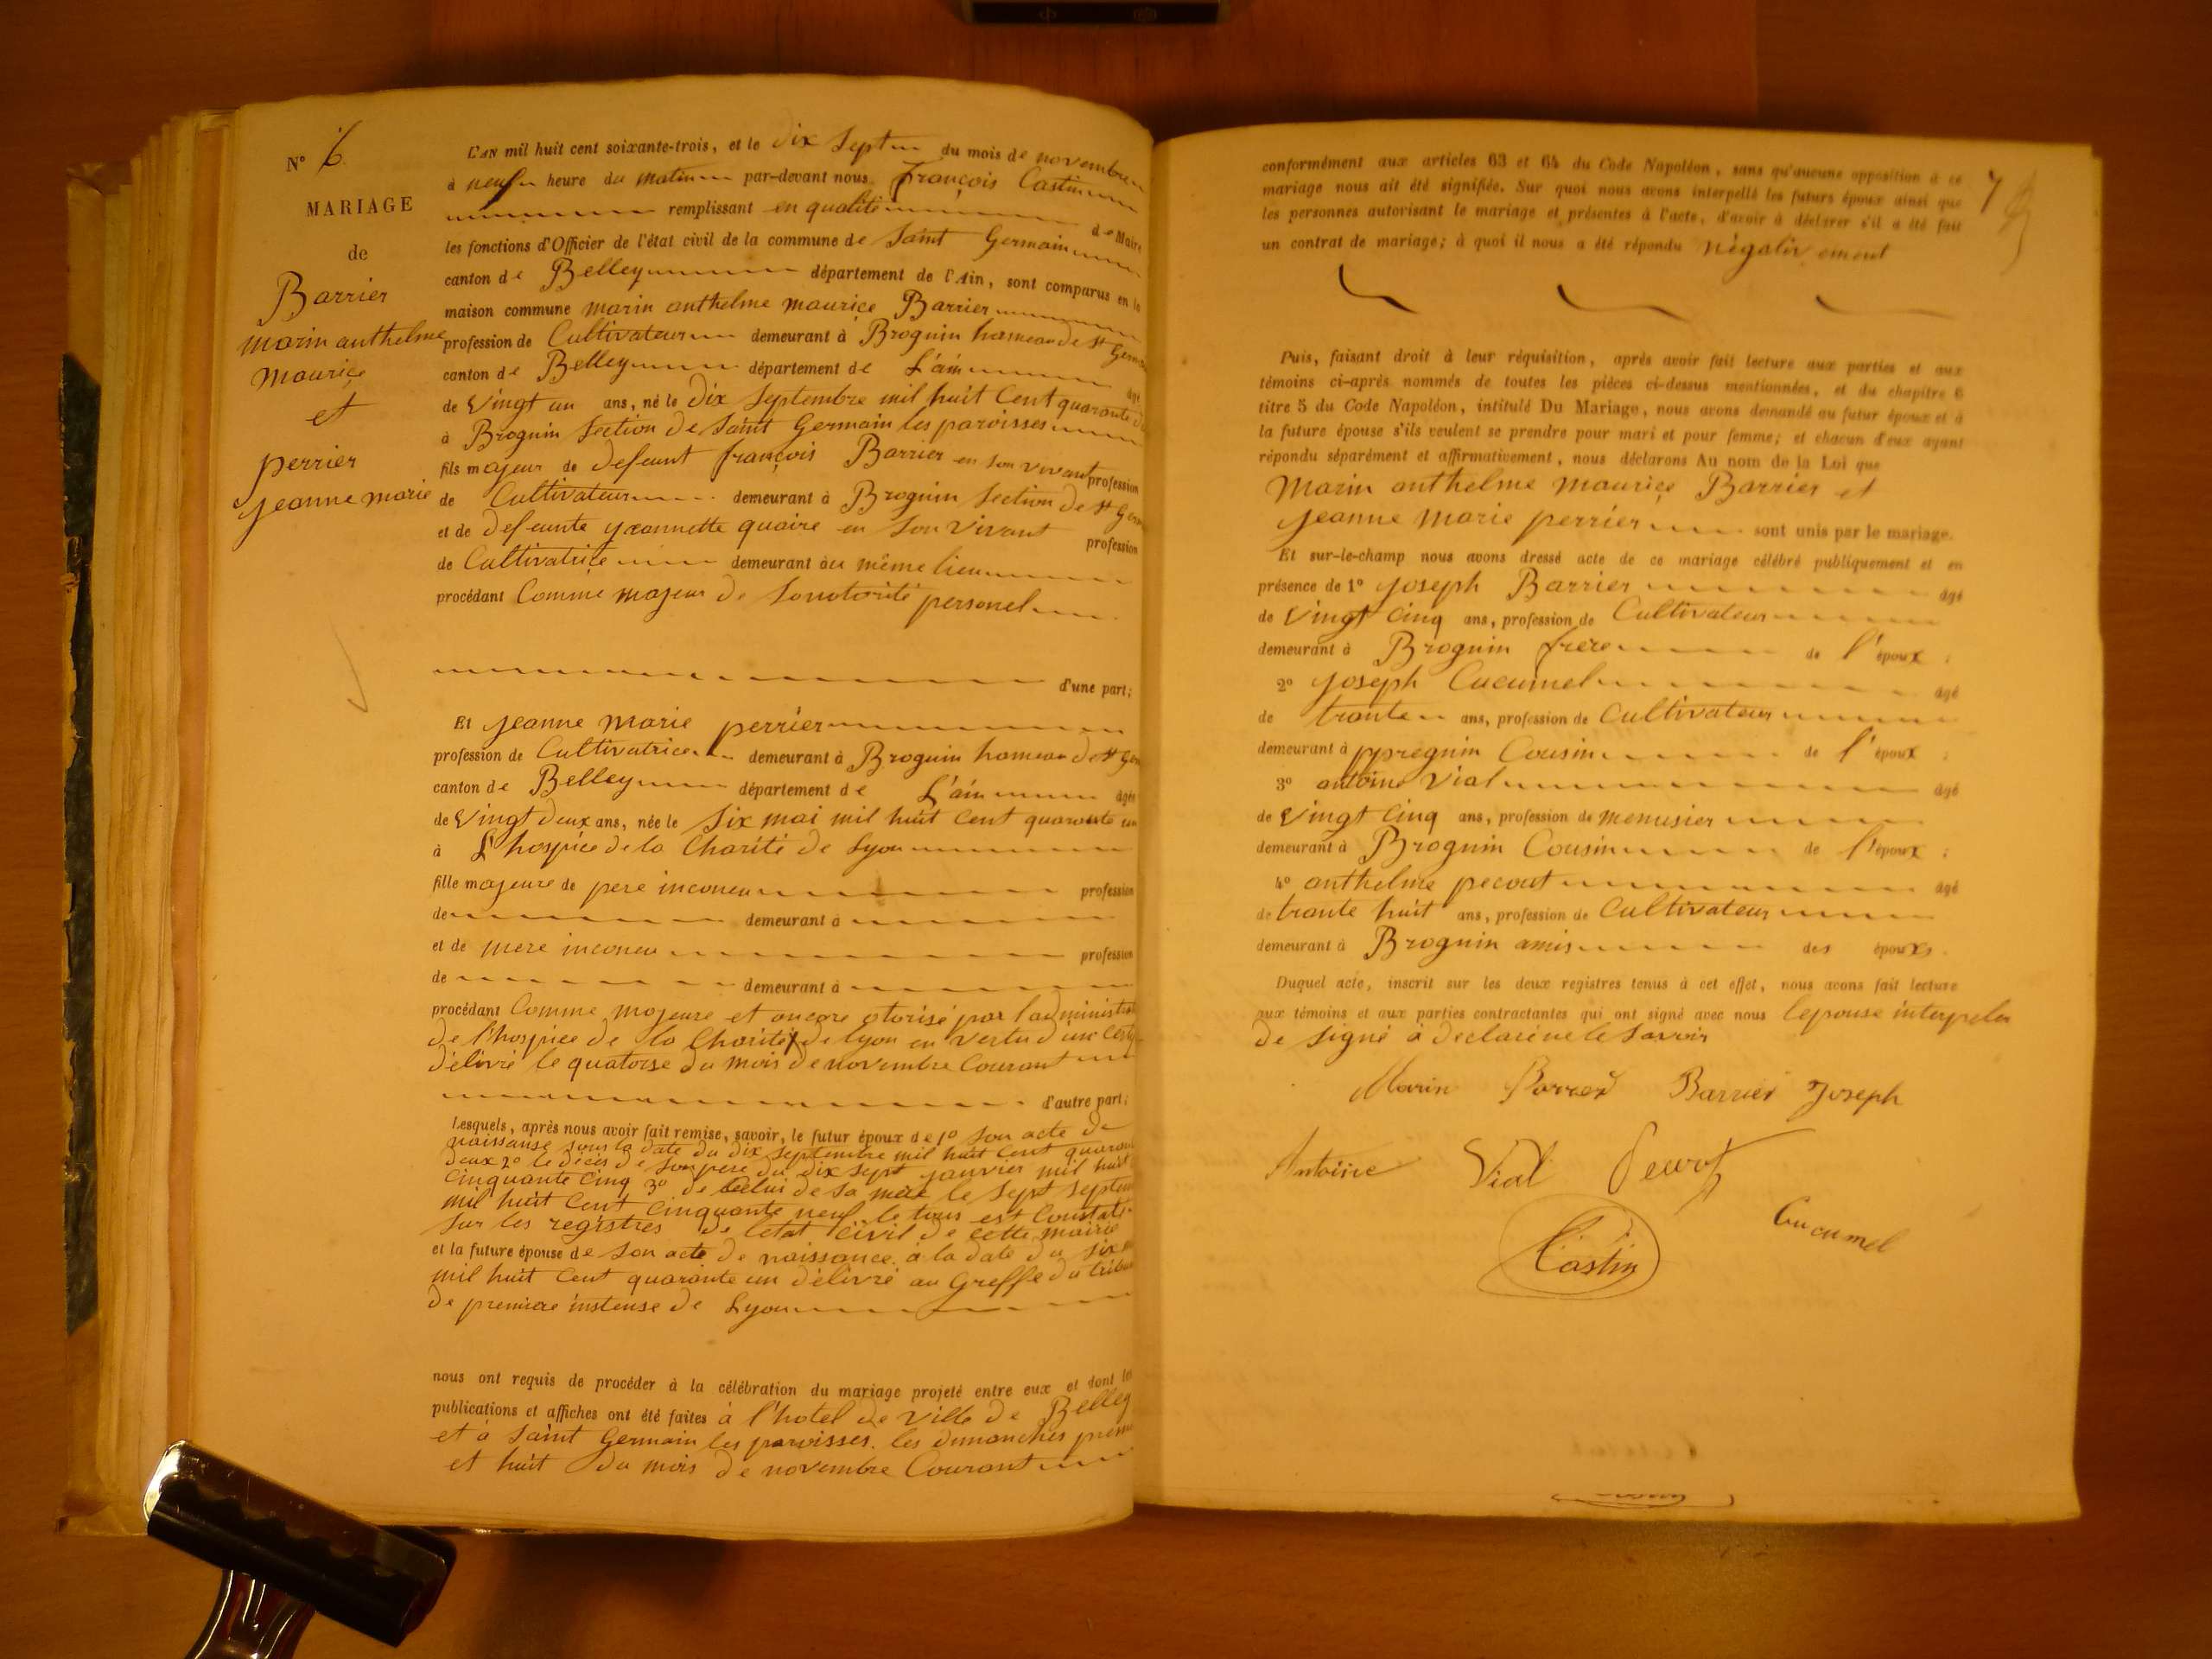 N° 6
MARIAGE
de
Barrier
marin anthelme
maurice
et
perrier
jeanne marie
L'AN mil huit cent soixante-trois, et le dix Sept du mois de novembre
à neuf heure du matin par-devant nous françois Castin
remplissant en qualité de Maire
les fonctions d'Officier de l'état civil de la commune de Saint Germain
canton de Belley département de l'Ain, sont comparus en la
maison commune marin anthelme maurice Barrier
profession de Cultivateur demeurant à Brognin hameau de st Germ
canton de Belley département de L'ain âgé
de Vingt un ans, né le dix Septembre mil huit Cent quarante d
à Brognin Section de Saint Germain les paroisses
fils majeur de defeunt françois Barrier en son vivant profession
de Cultivateur demeurant à Brognin Section de st Ger
et de defeunte jeannette quaire en son vivant profession
de Cultivatrice demeurant au même lieu
procédant Comme majeur de Sonotorité personel
d'une part;
Et jeanne marie perrier
profession de Cultivatrice demeurant à Brognin hameau de st Ger
canton de Belley département de L'ain âgée
de Vingt deux ans, née le Six mai mil huit Cent quarante un
à L'hospice de la Charité de Lyon
fille majeure de pere inconeu profession
de demeurant à
et de mere inconeu profession
de demeurant à
procédant Comme majeure et oncore otorisé par l'administrat
de l'hospice de la Charité de lyon en vertu d'une
délivré le quatorse du mois de novembre Courant
d'autre part;
Lesquels, après nous avoir fait remise, savoir, le futur époux de 1° Son acte de
naissanse sous la date du dix septembre mil huit Cent quarant
deux 2° le décès de son pere du dix sept janvier mil huit
Cinquante Cinq 3° de Celui de sa mère le Sept Septem
mil huit Cent Cinquante neuf le tous est Constaté
Sur les registres de letat Civil de Cette mairie
et la future épouse de Son acte de naissance à la date du six
mil huit Cent quarante un délivré au Greffe du tribun
de premiere instense de Lyon
nous ont requis de procéder à la célébration du mariage projeté entre eux et dont les
publications et affiches ont été faites à l'hotel de ville de Belley
et à Saint Germain les paroisses. les dimanches prem
et huit du mois de novembre Courant
conformément aux articles 63 et 64 du Code Napoléon, sans qu'aucune opposition à ce
mariage nous ait été signifiée. Sur quoi nous avons interpellé les futurs époux ainsi que
les personnes autorisant le mariage et présentes à l'acte, d'avoir à déclarer s'il a été fait
un contrat de mariage; à quoi il nous a été répondu négativement
7
Puis, faisant droit à leur réquisition, après avoir fait lecture aux parties et aux
témoins ci-après nommés de toutes les pièces ci-dessus mentionnées, et du chapitre 6
titre 5 du Code Napoléon, intitulé Du Mariage, nous avons demandé au futur époux et à
la future épouse s'ils veulent se prendre pour mari et pour femme; et chacun d'eux ayant
répondu séparément et affirmativement, nous déclarons Au nom de la Loi que
Marin anthelme maurice Barrier et
jeanne marie perrier sont unis par le mariage.
Et sur-le-champ nous avons dressé acte de ce mariage célébré publiquement et en
présence de 1° joseph Barrier âgé
de Vingt Cinq ans, profession de Cultivateur
demeurant à Brognin frere de l'époux;
2° joseph Cucumel âgé
de trante ans, profession de Cultivateur
demeurant à ppregnin Cousin de l'époux;
3° antoine Vial âgé
de Vingt Cinq ans, profession de menusier
demeurant à Brognin Cousin de l'époux;
4° anthelme pecout âgé
de trante huit ans, profession de Cultivateur
demeurant à Brognin amis des époux.
Duquel acte, inscrit sur les deux registres tenus à cet effet, nous avons fait lecture
aux témoins et aux parties contractantes qui ont signé avec nous lepouse interpeler
de Signé à declaré ne le Savoir
Marin Barrier Barrier Joseph
Antoine Vial
Cucumel
Castin